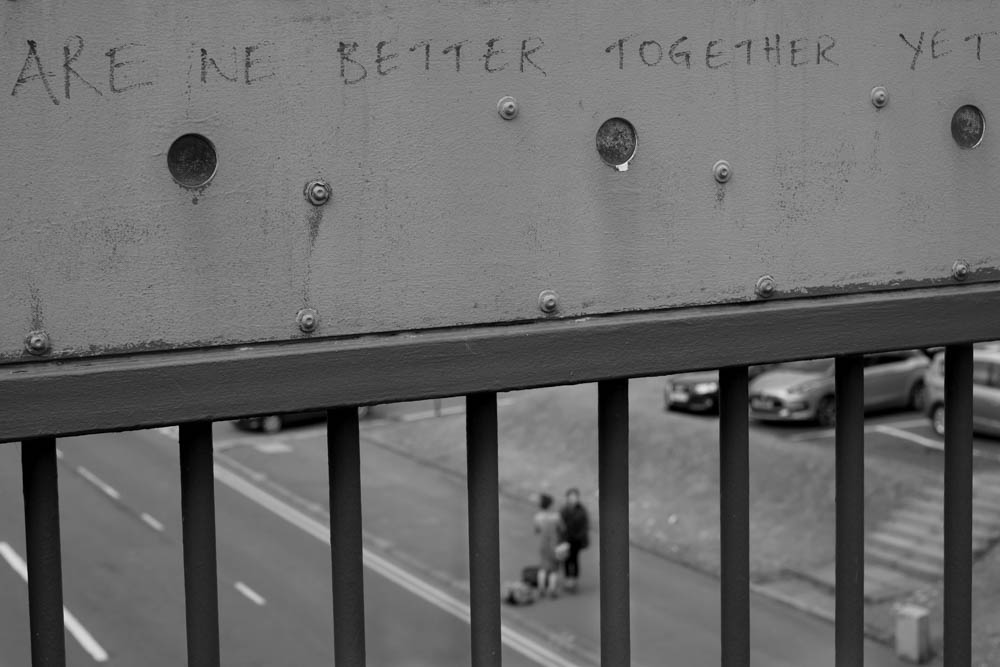 ARE WE BETTER TOGETHER YET